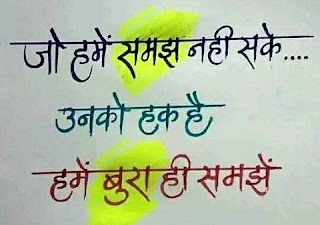 जो हमें समझ नही सके....
उनको हक है
हमें बुरा ही समझें